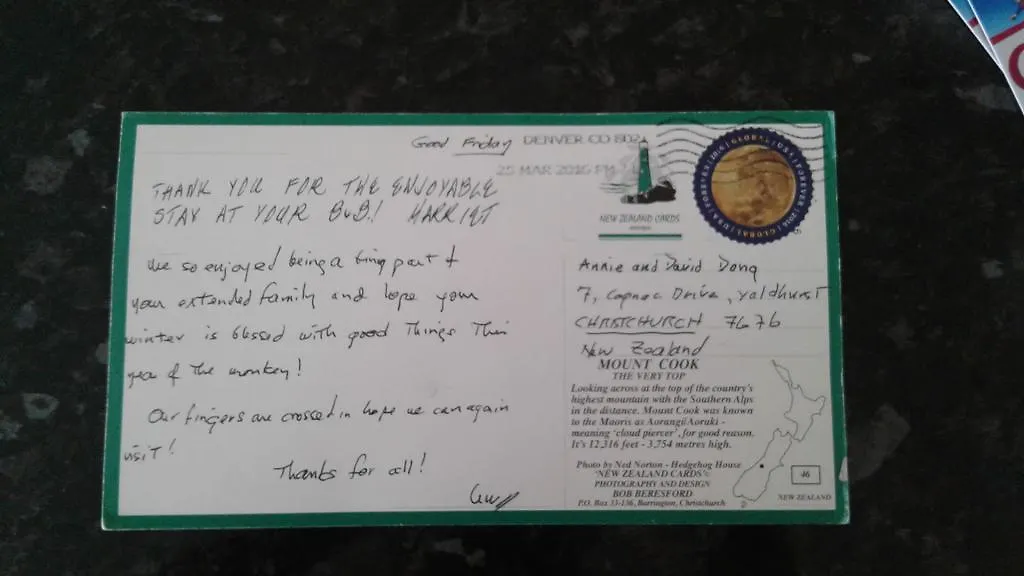 Good Friday
DENVER CO 802
25 MAR 2016 PM
GLOBAL USA FOREVER 2016 GLOBAL USA FOREVER 2016
THANK YOU FOR THE ENJOYABLE
STAY AT YOUR B&B! HARRIET
We so enjoyed being a tiny part of
your extended family and hope your
winter is blessed with good Things This
year of The monkey!
Our fingers are crossed in hope we can again
visit!
Thanks for all!
NEW ZEALAND CARDS
Annie and David Dong
7, Cognac Drive, Yaldhurst
CHRISTCHURCH 7676
New Zealand
MOUNT COOK
THE VERY TOP
Looking across at the top of the country's
highest mountain with the Southern Alps
in the distance. Mount Cook was known
to the Maoris as Aorangi/Aoraki -
meaning 'cloud piercer', for good reason.
It's 12,316 feet - 3,754 metres high.
Photo by Ned Norton - Hedgehog House
'NEW ZEALAND CARDS'©
PHOTOGRAPHY AND DESIGN
BOB BERESFORD
P.O. Box 33-136, Barrington, Christchurch
46
NEW ZEALAND